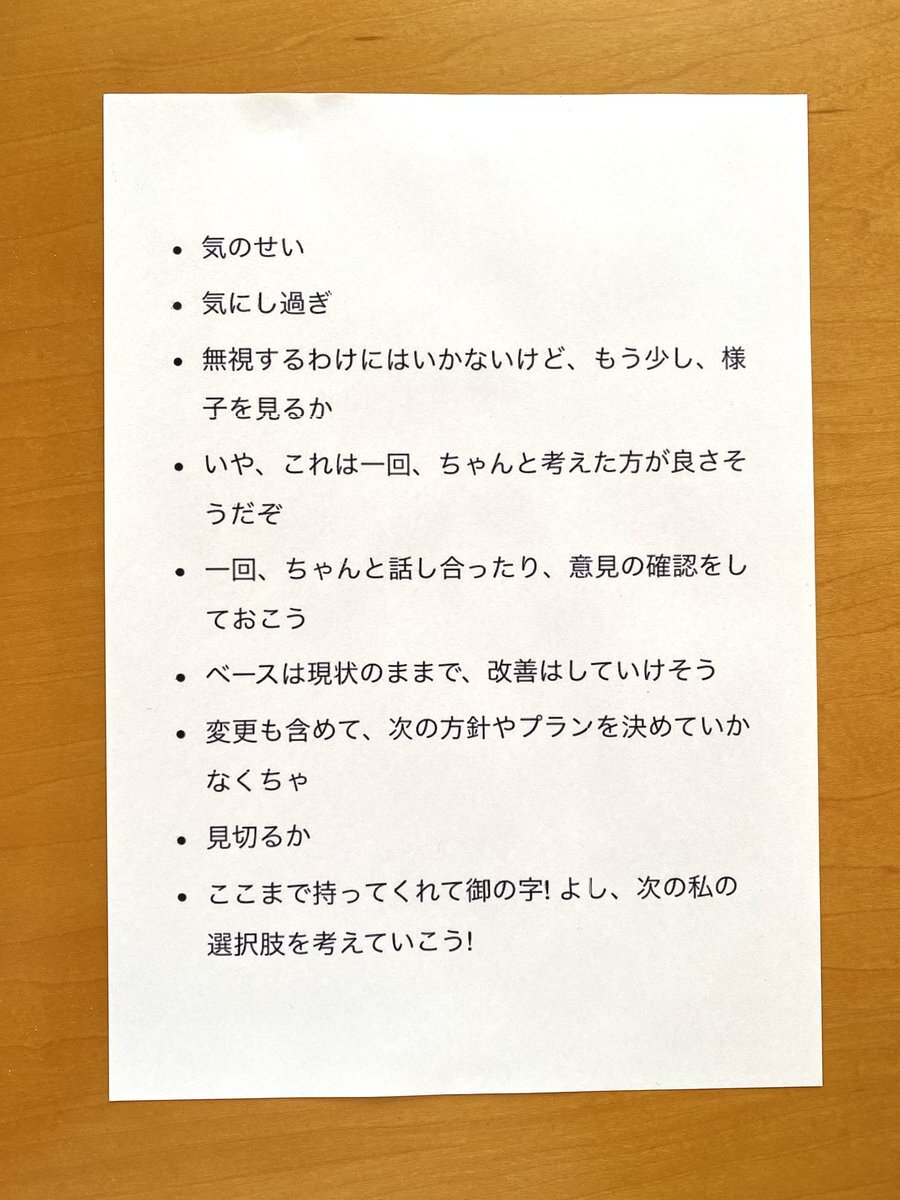 • 気のせい
• 気にし過ぎ
• 無視するわけにはいかないけど、もう少し、様
子を見るか
• いや、これは一回、ちゃんと考えた方が良さそ
うだぞ
• 一回、ちゃんと話し合ったり、意見の確認をし
ておこう
• ベースは現状のままで、改善はしていけそう
• 変更も含めて、次の方針やプランを決めていか
なくちゃ
• 見切るか
• ここまで持ってくれて御の字! よし、次の私の
選択肢を考えていこう!